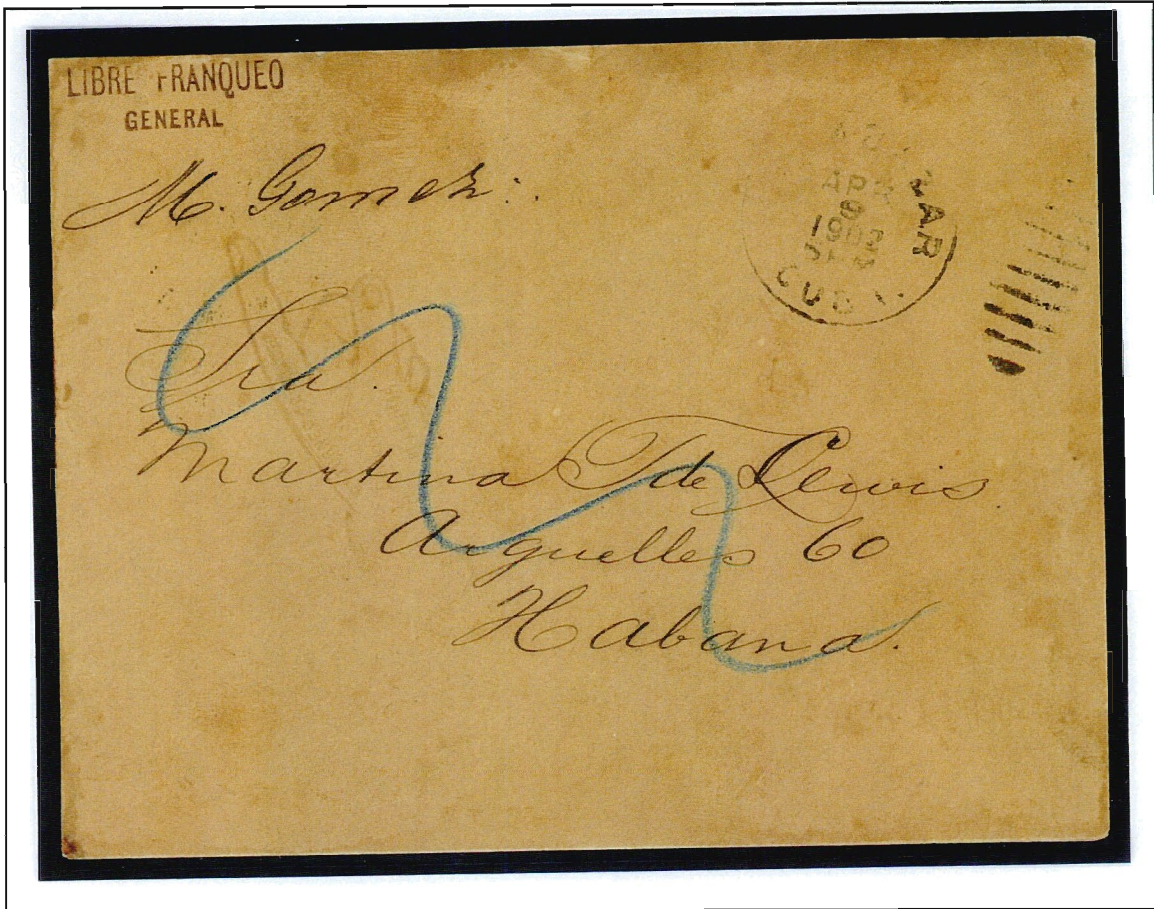 LIBRE FRANQUEO
GENERAL
M. Gomez.
APR
8
1902
CUBA.
Sra.
Martina T de Lewis
Arguelles 60
Habana.